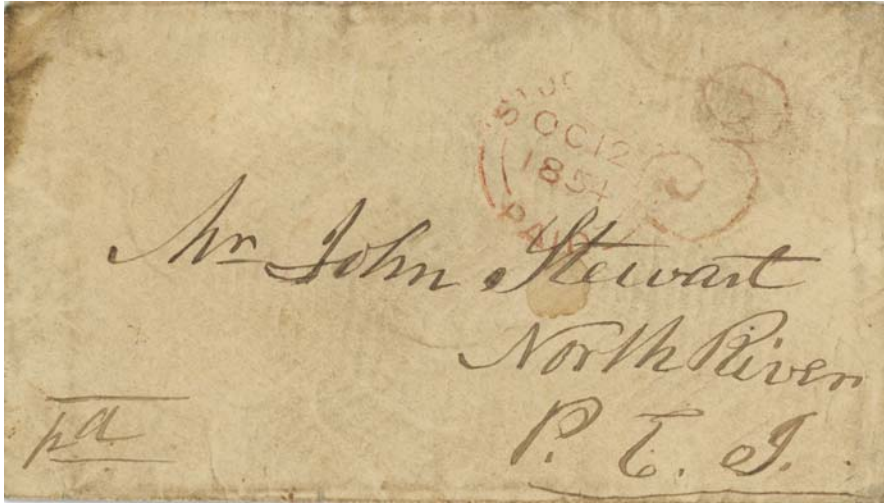 OC 12
1854
PAID
Mr John Stewart
North River
P. E. I.
pd